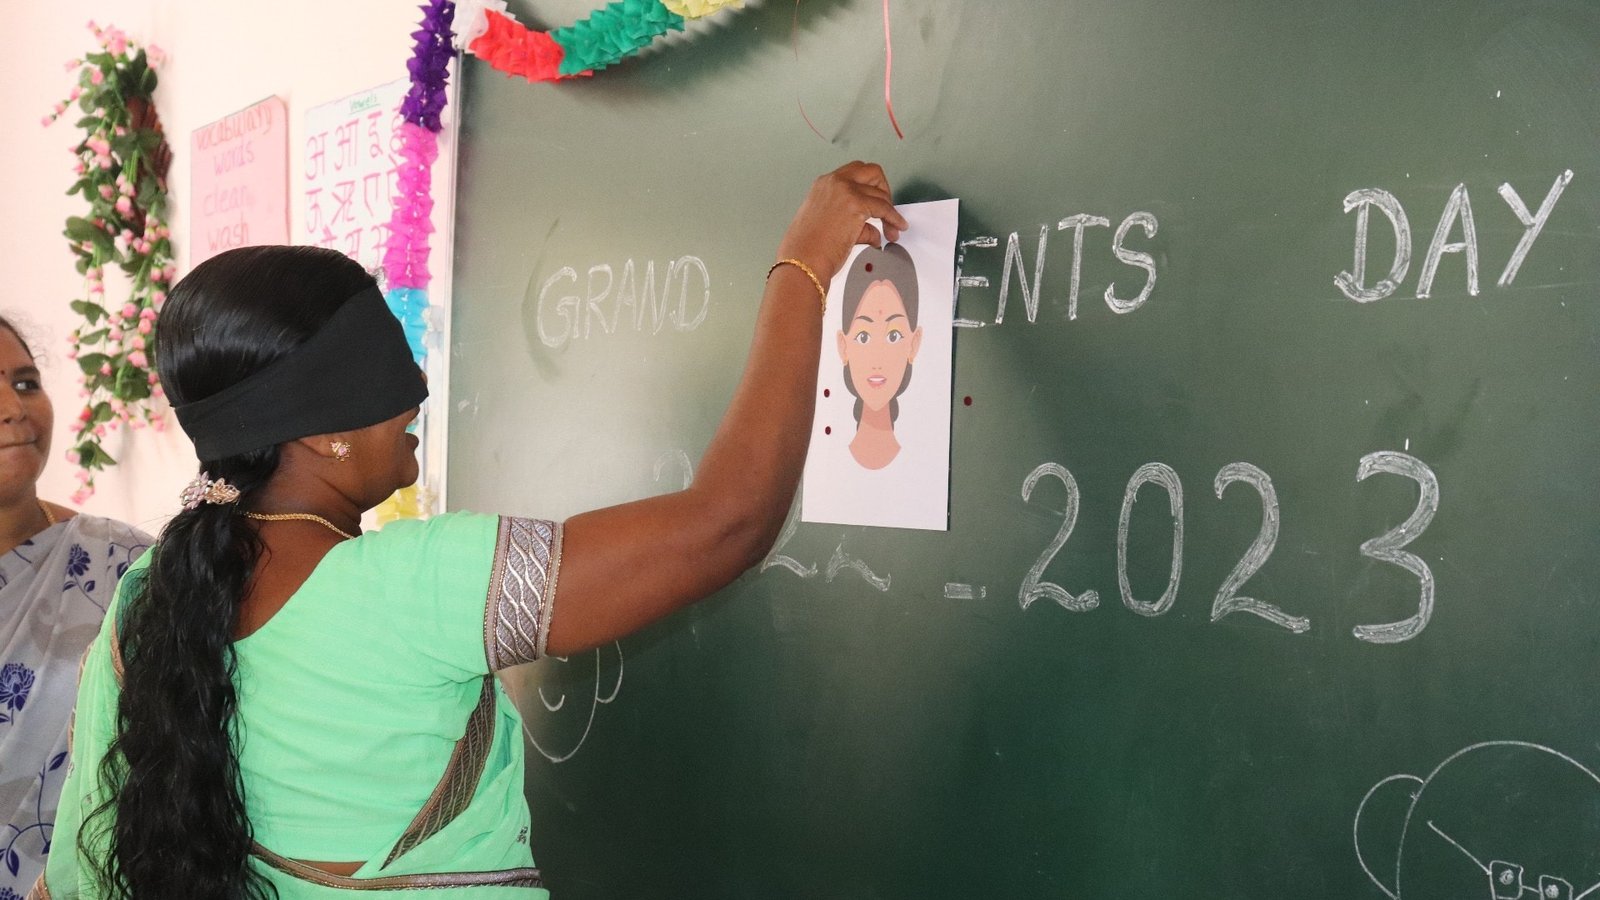 vocabulary
words
clean
wash
Vowels
अ आ इ
ऋ ए
GRAND ENTS DAY
2023